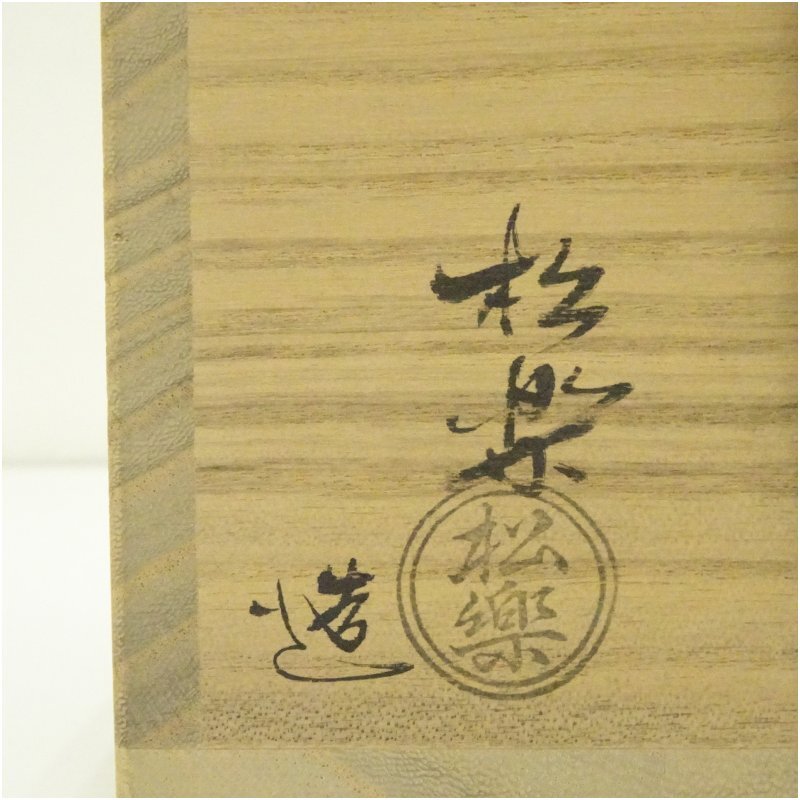 松楽
造
松樂